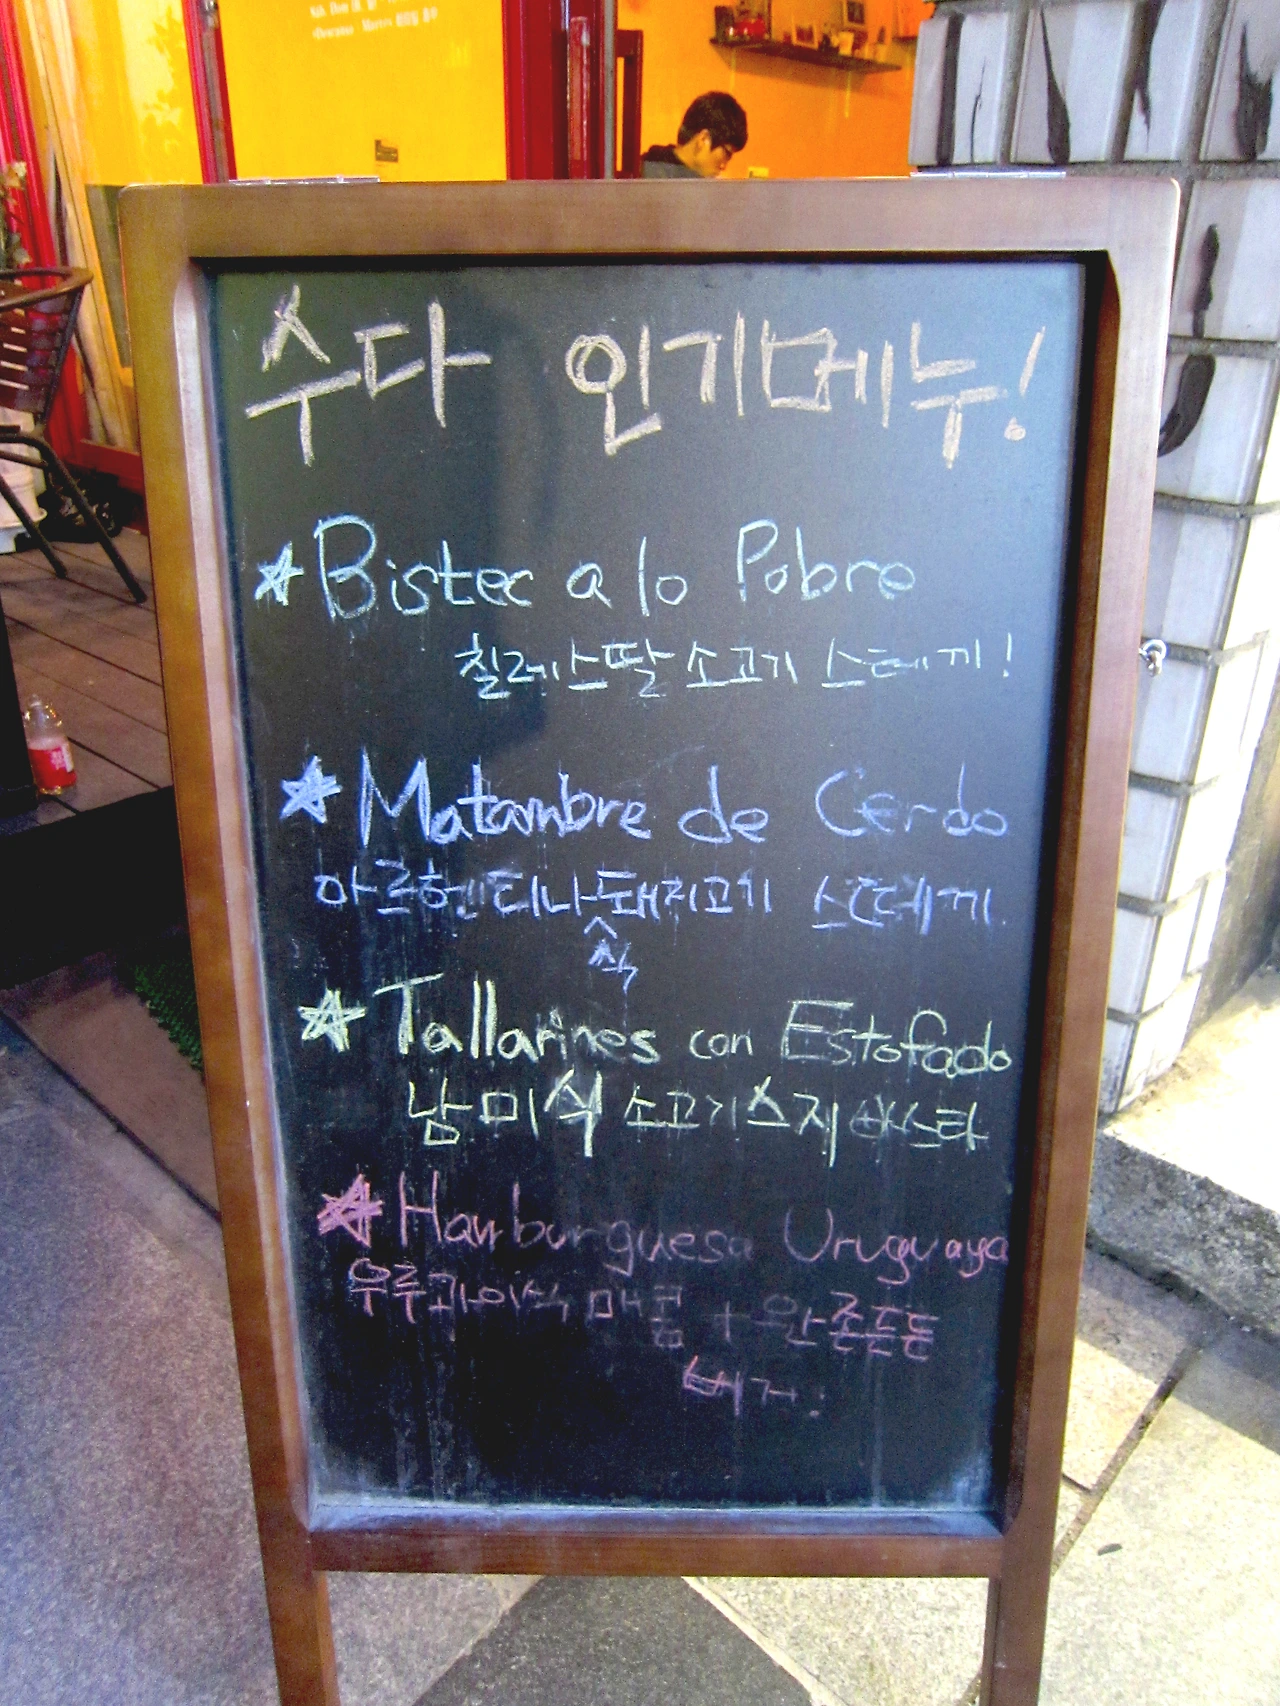 수다 인기메뉴!
Bistec a lo Pobre
칠레스딸 소고기 스테끼!
Matambre de Cerdo
아르헨티나 돼지고기 스떼끼
식
Tallarines con Estofado
남미식 소고기 스지 파스타
Hamburguesa Uruguaya
우루과이식 매콤 + 완존든든
버거!